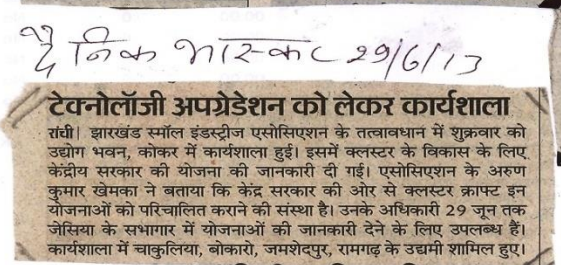 दैनिक भास्कर 29/6/13
टेक्नोलॉजी अपग्रेडेशन को लेकर कार्यशाला
रांची| झारखंड स्मॉल इंडस्ट्रीज एसोसिएशन के तत्वावधान में शुक्रवार को
उद्योग भवन, कोकर में कार्यशाला हुई। इसमें क्लस्टर के विकास के लिए
केंद्रीय सरकार की योजना की जानकारी दी गई। एसोसिएशन के अरुण
कुमार खेमका ने बताया कि केंद्र सरकार की ओर से क्लस्टर क्राफ्ट इन
योजनाओं को परिचालित कराने की संस्था है। उनके अधिकारी 29 जून तक
जेसिया के सभागार में योजनाओं की जानकारी देने के लिए उपलब्ध हैं।
कार्यशाला में चाकुलिया, बोकारो, जमशेदपुर, रामगढ़ के उद्यमी शामिल हुए।